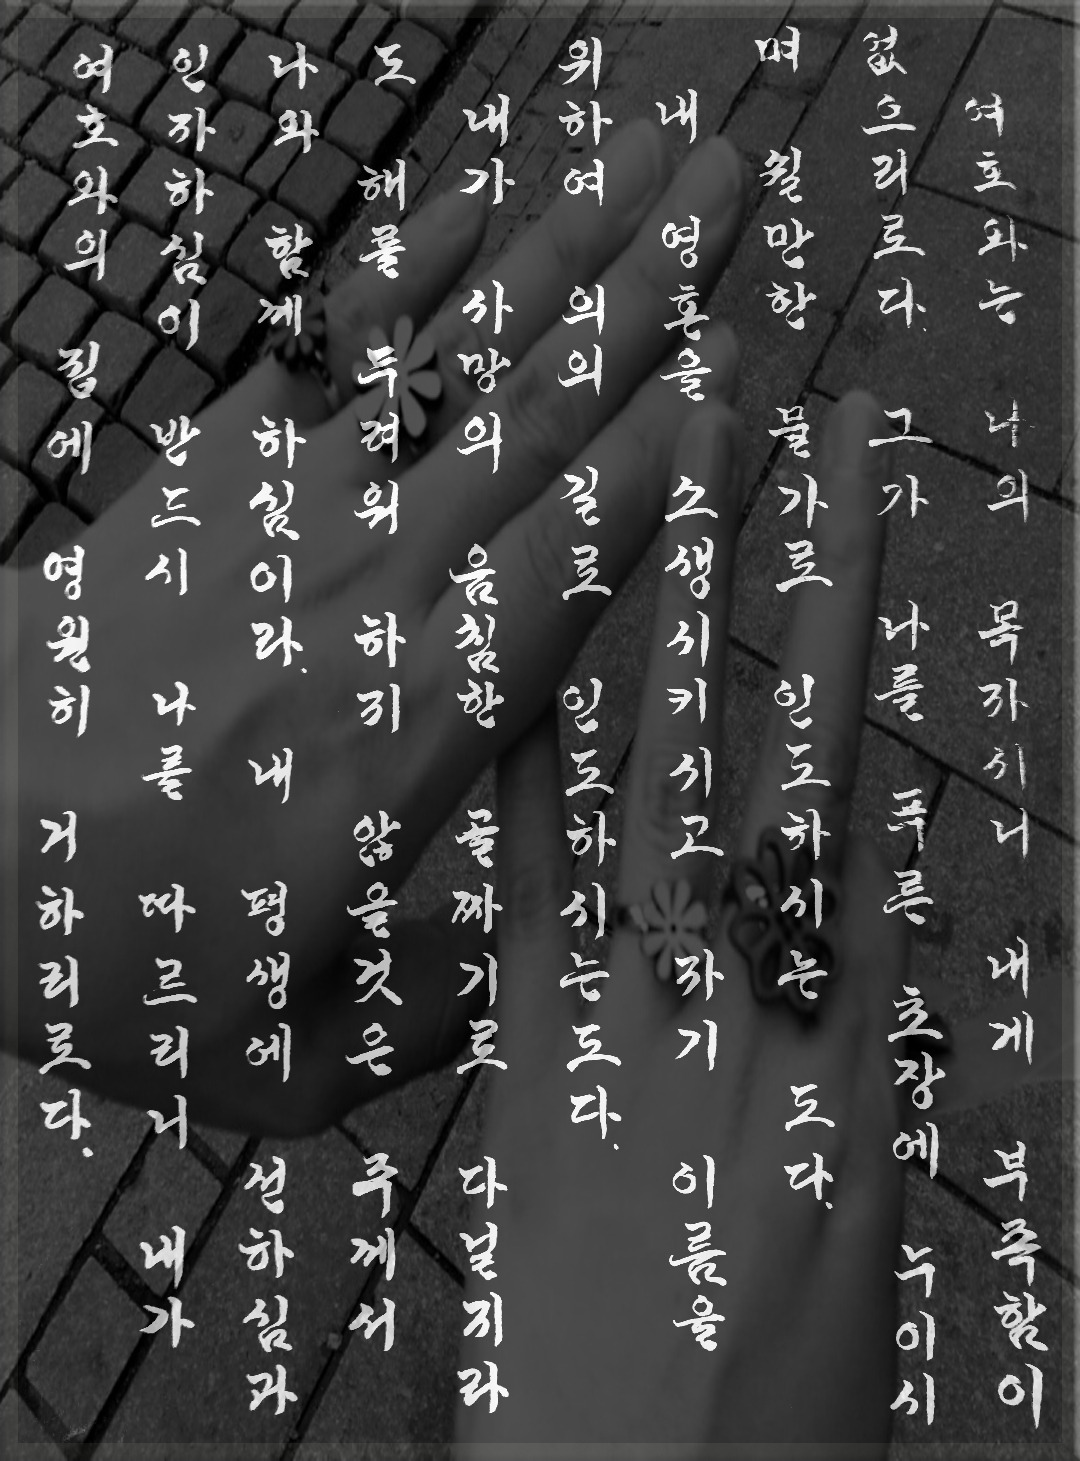 여호와는 나의 목자시니 내게 부족함이
없으리로다. 그가 나를 푸른 초장에 누이시
며 쉴만한 물가로 인도하시는 도다.
내 영혼을 소생시키시고 자기 이름을
위하여 의의 길로 인도하시는도다.
내가 사망의 음침한 골짜기로 다닐지라
도 해를 두려워 하지 않을것은 주께서
나와 함께 하심이라. 내 평생에 선하심과
인자하심이 반드시 나를 따르리니 내가
여호와의 집에 영원히 거하리로다.